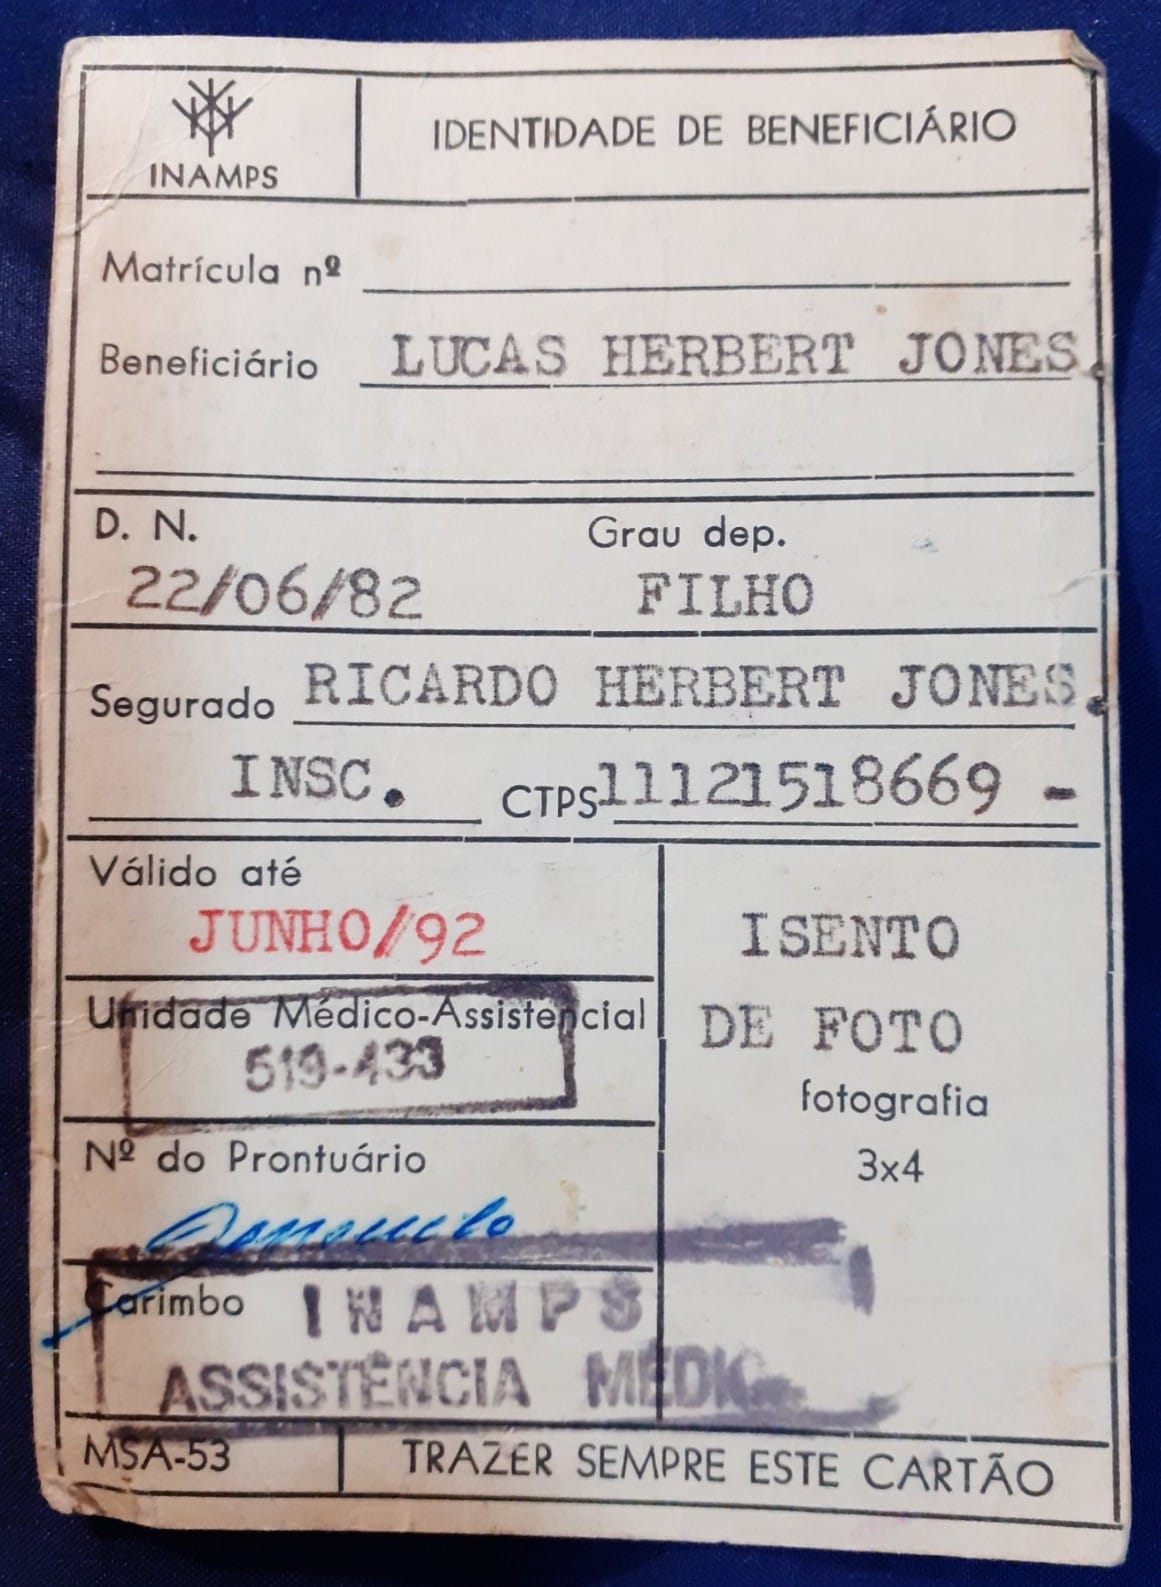 INAMPS
IDENTIDADE DE BENEFICIÁRIO
Matrícula nº
Beneficiário LUCAS HERBERT JONES.
D. N.
Grau dep.
22/06/82
FILHO
Segurado RICARDO HERBERT JONES.
INSC. CTPS 11121518669 -
Válido até
JUNHO/92
ISENTO
DE FOTO
fotografia
3x4
Unidade Médico-Assistencial
519-433
Nº do Prontuário
Carimbo
INAMPS
ASSISTÊNCIA
MSA-53
TRAZER SEMPRE ESTE CARTÃO